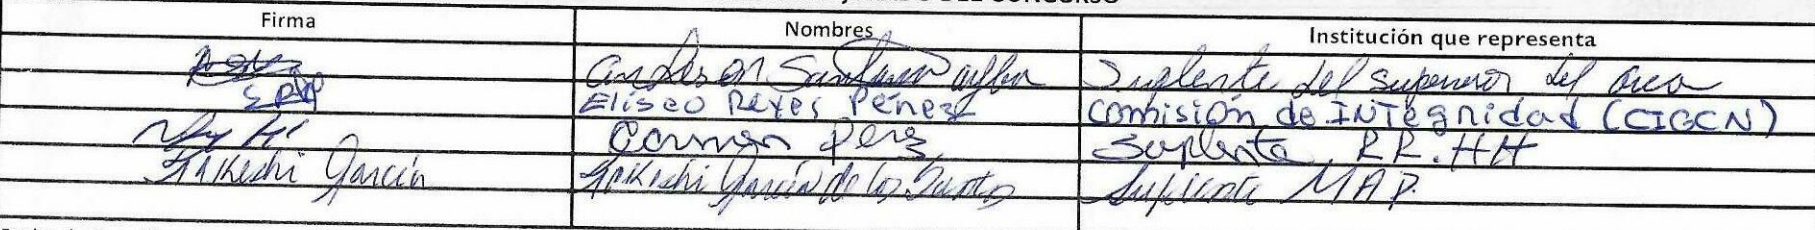 DEL CONCURSO
Firma Nombres Institución que representa
Anderson Santana Suplente del superior del area
Eliseo Reyes Pérez Comisión de INTegridad (CIGCN)
Carmen Perez Suplente RR.HH
Takeshi García Takeshi García de los Santos Suplente MAP